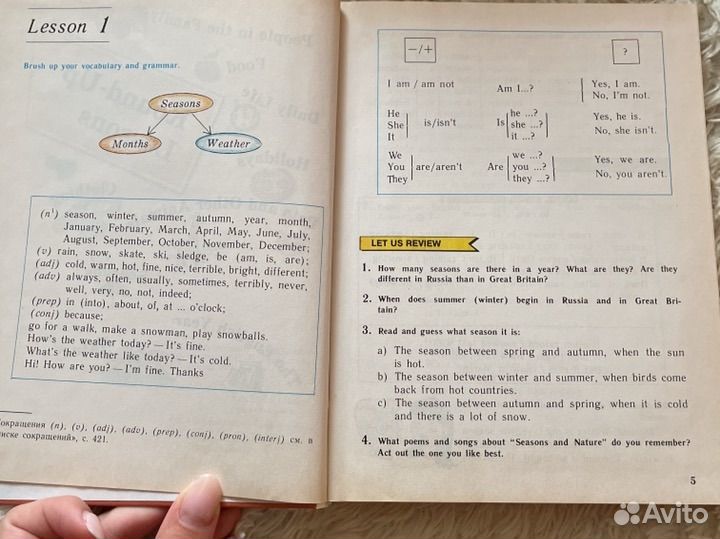 Lesson 1
Brush up your vocabulary and grammar.
Seasons
Months
Weather
(n¹) season, winter, summer, autumn, year, month,
January, February, March, April, May, June, July,
August, September, October, November, December;
(v) rain, snow, skate, ski, sledge, be (am, is, are);
(adj) cold, warm, hot, fine, nice, terrible, bright, different;
(adv) always, often, usually, sometimes, terribly, never,
well, very, no, not, indeed;
(prep) in (into), about, of, at ... o'clock;
(conj) because;
go for a walk, make a snowman, play snowballs.
How's the weather today? — It's fine.
What's the weather like today? — It's cold.
Hi! How are you? — I'm fine. Thanks
Сокращения (n), (v), (adj), (adv), (prep), (conj), (pron), (interj) см. в
списке сокращений», с. 421.
–/+
?
I am / am not
Am I...?
Yes, I am.
No, I'm not.
He
She
It
is/isn't
Is
he ...?
she ...?
it ...?
Yes, he is.
No, she isn't.
We
You
They
are/aren't
Are
we ...?
you ...?
they ...?
Yes, we are.
No, you aren't.
LET US REVIEW
1. How many seasons are there in a year? What are they? Are they
different in Russia than in Great Britain?
2. When does summer (winter) begin in Russia and in Great Bri-
tain?
3. Read and guess what season it is:
a) The season between spring and autumn, when the sun
is hot.
b) The season between winter and summer, when birds come
back from hot countries.
c) The season between autumn and spring, when it is cold
and there is a lot of snow.
4. What poems and songs about "Seasons and Nature" do you remember?
Act out the one you like best.
5
Avito